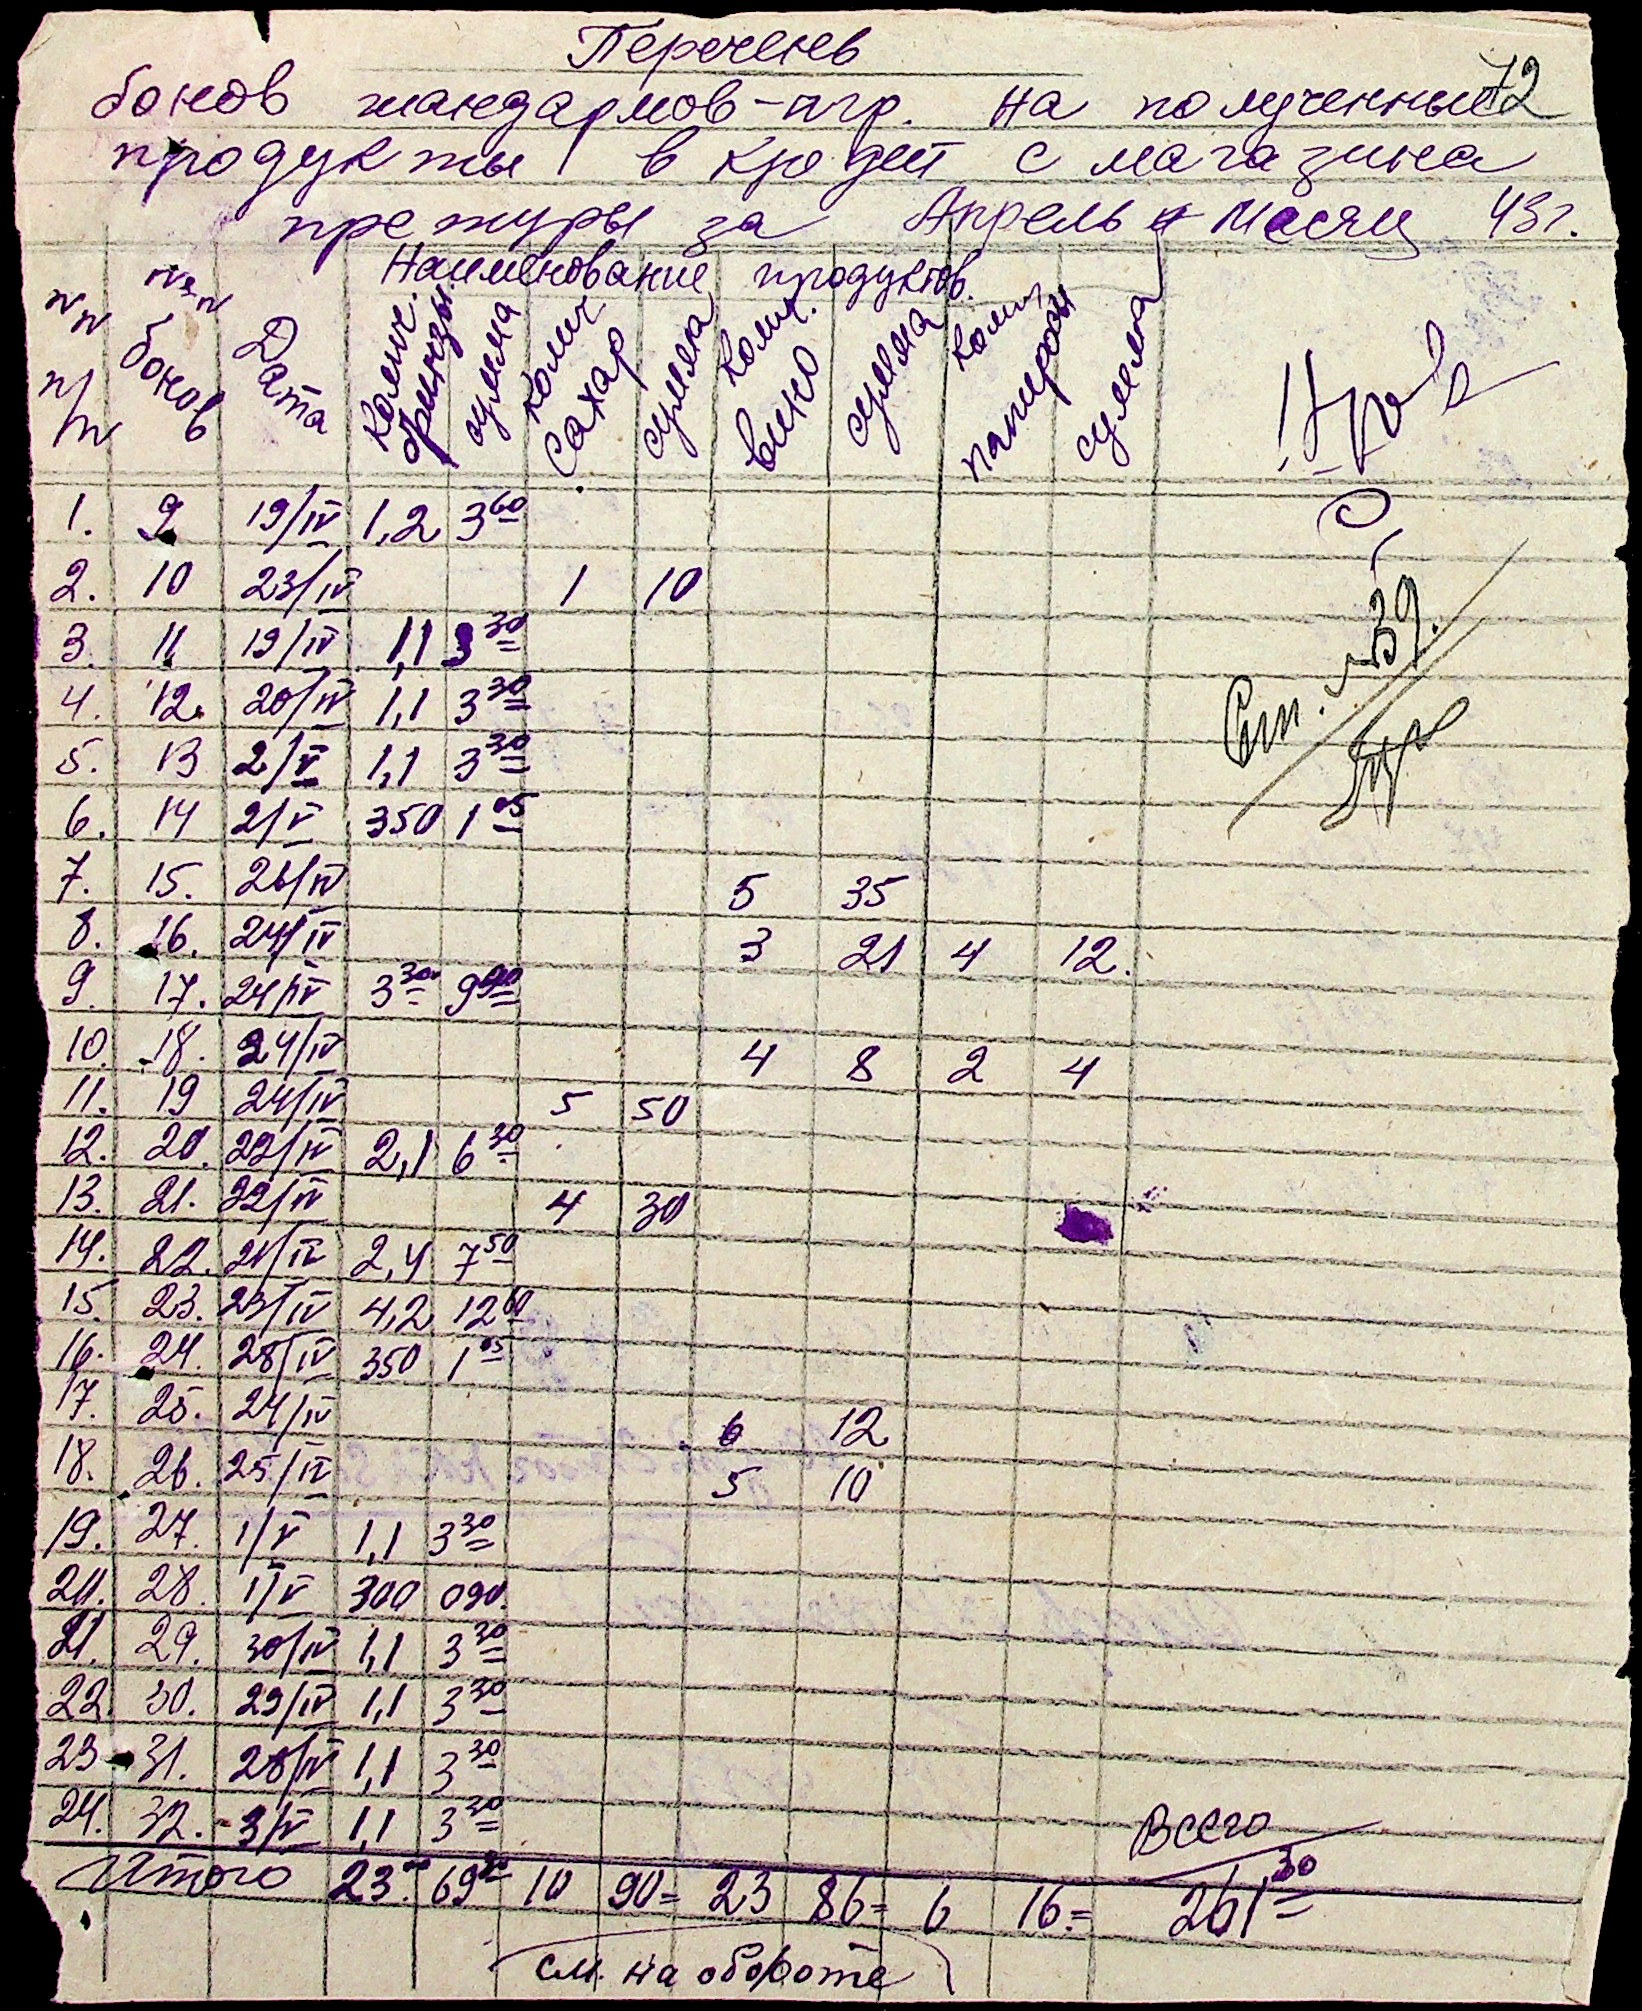 Перечень
72
бонов жандармов-пгр. на полученные
продукты в кредит с магазина
претуры за Апрель Месяц 43 г.
Наименование продуктов.
№№ п/п
№№ бонов
Дата
колич. брынзы
сумма
колич сахар
сумма
колич. вино
сумма
колич папирос
сумма
1. 9 19/IV 1,2 3 60
2. 10 23/IV 1 10
3. 11 19/IV 1,1 3 30
4. 12. 20/IV 1,1 3 30
5. 13 2/V 1,1 3 30
6. 14 2/V 350 1 05
7. 15. 26/IV 5 35
8. 16. 24/IV 3 21 4 12.
9. 17. 24/IV 3 30 9 90
10. 18. 24/IV 4 8 2 4
11. 19 24/IV 5 50
12. 20. 22/IV 2,1 6 30
13. 21. 22/IV 4 30
14. 22. 21/IV 2,4 7 50
15. 23. 23/IV 4,2 12 60
16. 24. 28/IV 350 1 05
17. 25. 24/IV 6 12
18. 26. 25/IV 5 10
19. 27. 1/V 1,1 3 30
20. 28. 1/V 300 090.
21. 29. 30/IV 1,1 3 30
22. 30. 29/IV 1,1 3 30
23 31. 28/IV 1,1 3 30
24. 32. 3/V 1,1 3 30
Всего
Итого 23. 69 10 90= 23 86= 6 16.= 261 30
см. на обороте